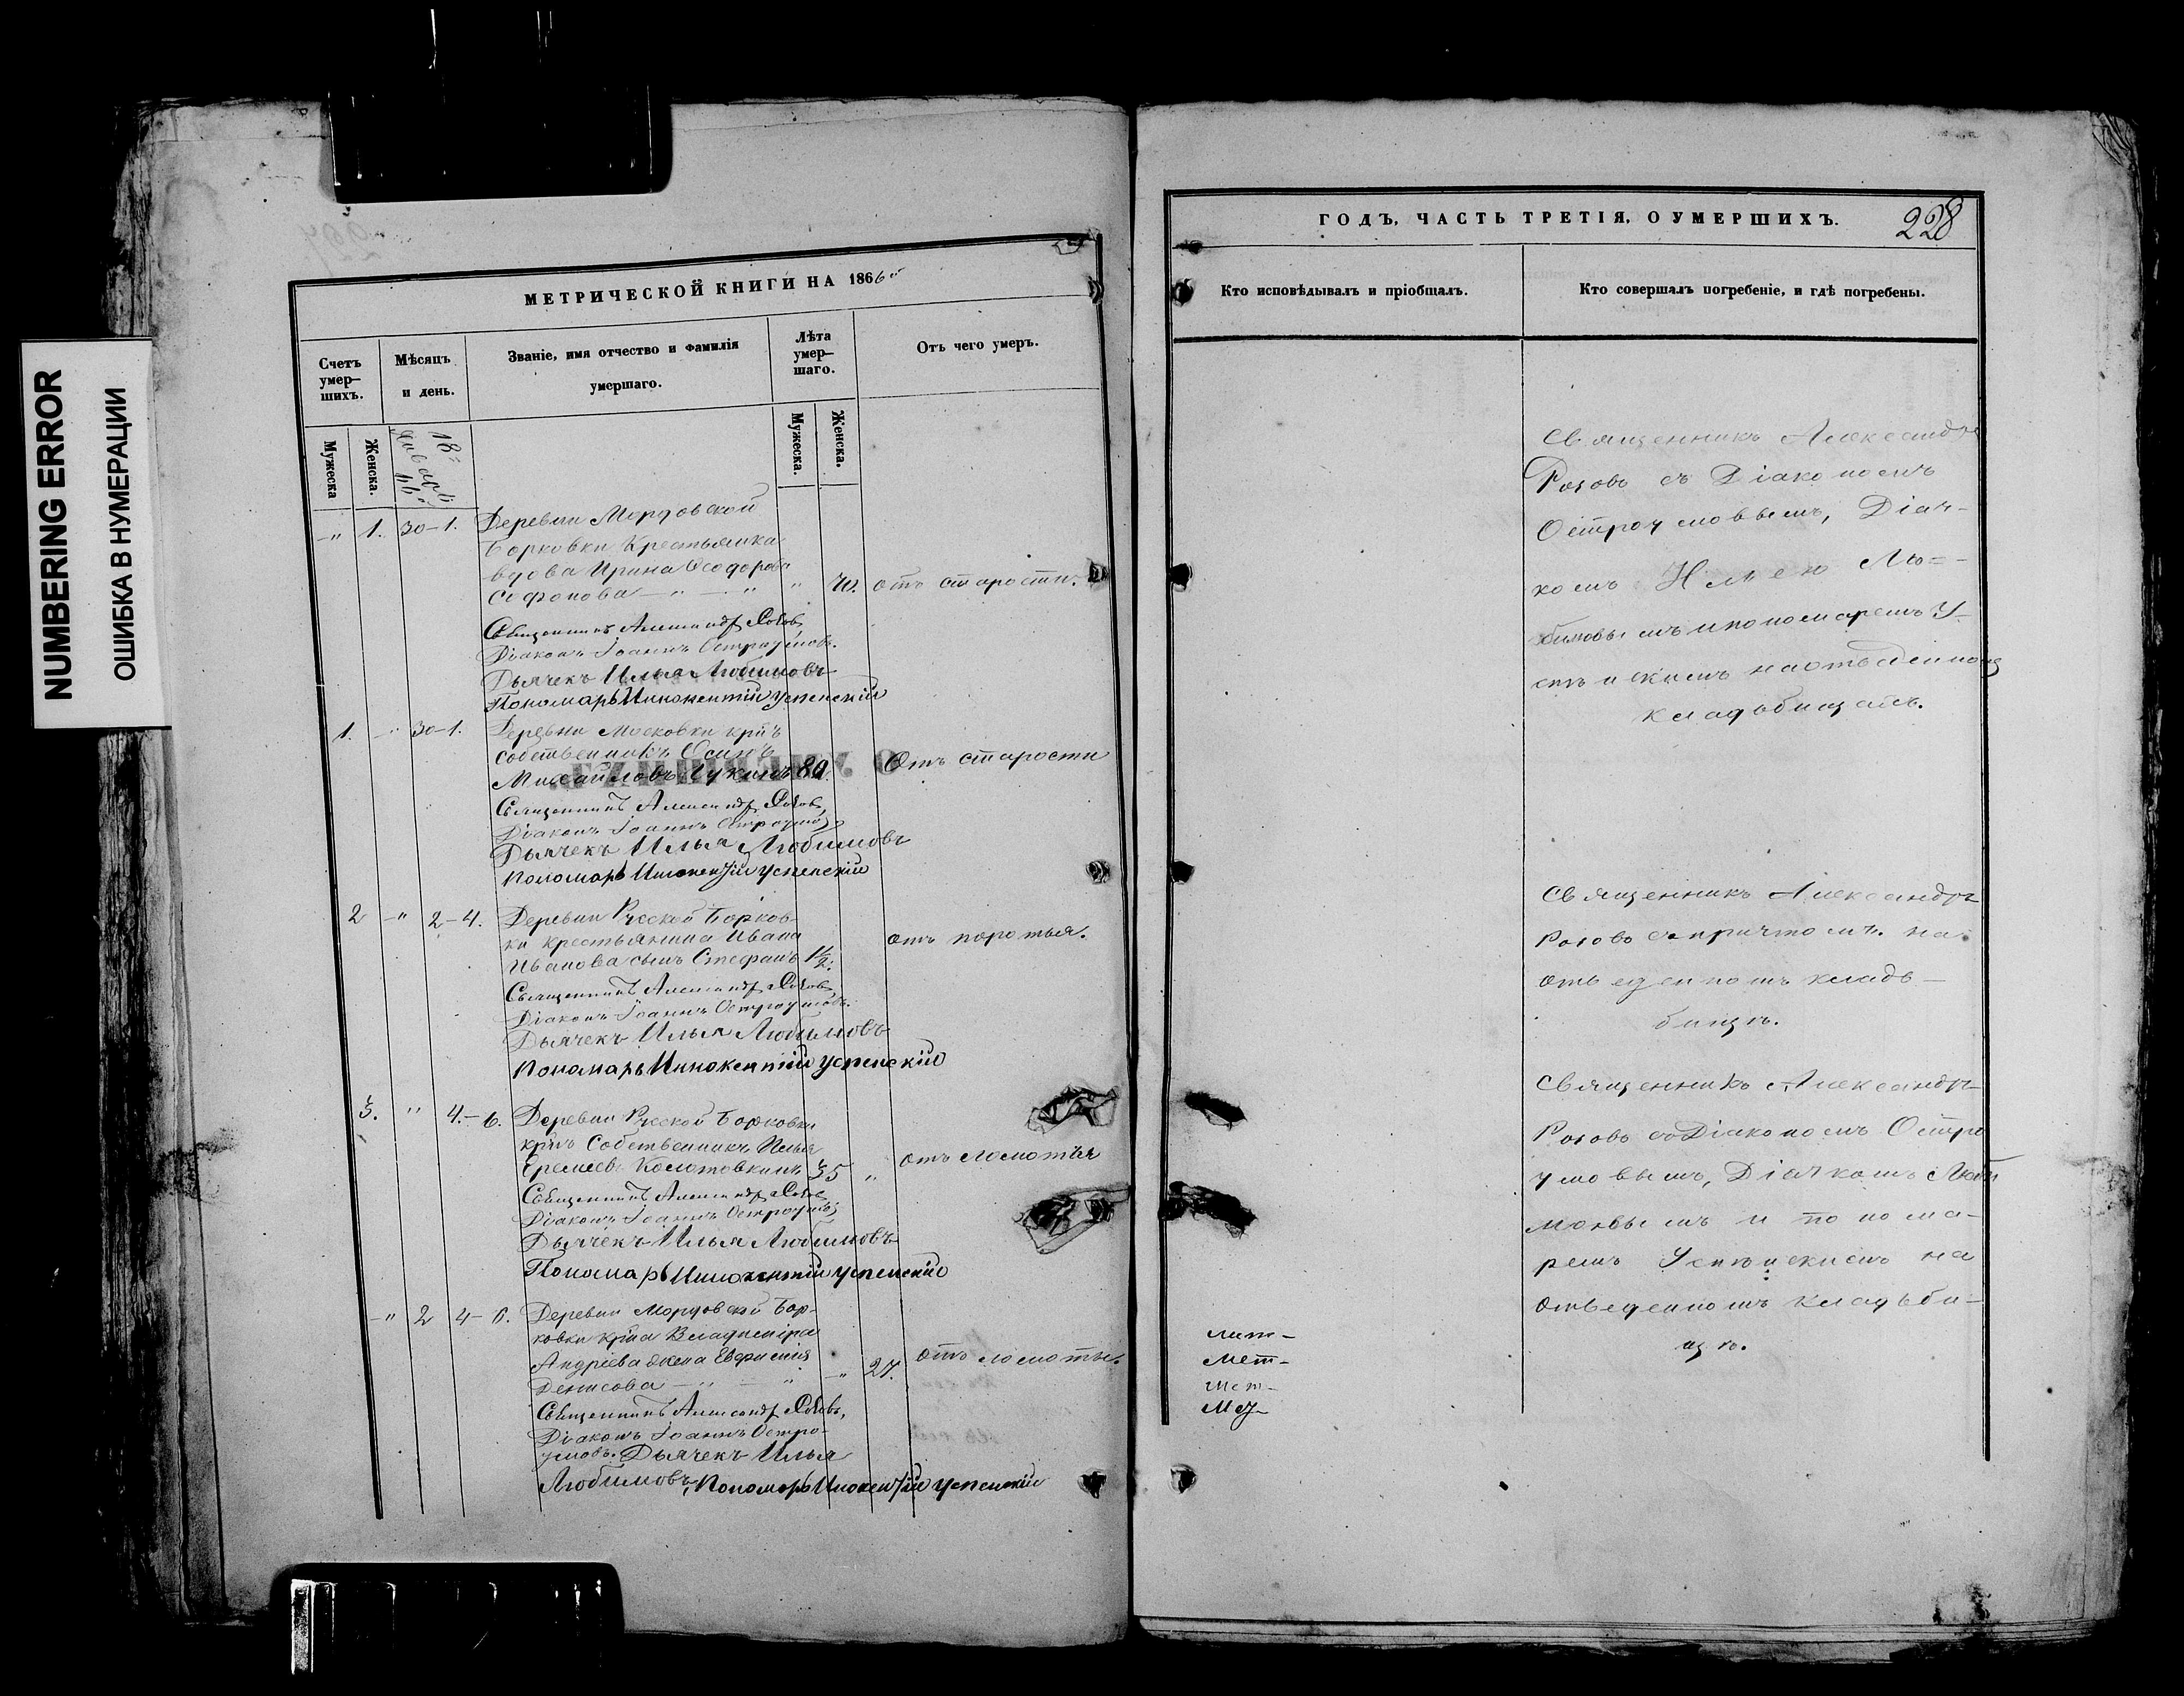 NUMBERING ERROR
ОШИБКА В НУМЕРАЦИИ
МЕТРИЧЕСКОЙ КНИГИ НА 1866й
Счетъ умер-
шихъ.
Мѣсяцъ
и день.
Званіе, имя отчество и фамилія
умершаго.
Лѣта
умер-
шаго.
Отъ чего умеръ.
Мужеска
Женска.
18
январь
66
Мужеска.
Женска.
-"- 1. 30-1. Деревни Мордовской
Борковки Крестьянка
вдова Ирина Ѳеодорова
Софонова — " — " " 70. отъ старости.
Священникъ Александръ Розовъ
Діаконъ Іоаннъ Остроумовъ.
Дьячекъ Илья Любимовъ
Пономарь Иннокентій Успенскій
1. -"- 30-1. Деревни Московки крнъ
собственникъ Осипъ
Михайловъ Лукинъ 80. Отъ старости
Священникъ Александръ Розовъ,
Діаконъ Іоаннъ Остроумовъ
Дьячекъ Илья Любимовъ
Пономарь Инокентій Успенскій
2 -"- 2-4. Деревни Русской Борков-
ки крестьянина Ивана
Иванова сынъ Стефанъ 1½. отъ поротья.
Священникъ Александръ Розовъ,
Діаконъ Іоаннъ Остроумовъ.
Дьячекъ Илья Любимовъ
Пономарь Иннокентій Успенскій
3. " 4-6. Деревни Русской Борковки
крнъ Собственникъ Илья
Еремеевъ Колотовкинъ 35 " отъ ломотья
Священникъ Александръ Розовъ
Діаконъ Іоаннъ Остроумовъ
Дьячекъ Илья Любимовъ
Пономарь Инокентій Успенскій
-"- 2 4-6. Деревни Мордовской Бор-
ковки крна Владиміра
Андріева жена Евфимія
Денисова — " — " -"- 27. отъ ломотья.
Священникъ Александръ Розовъ,
Діаконъ Іоаннъ Остро-
умовъ. Дьячекъ Илья
Любимовъ, Пономарь Инокентій Успенскій
ГОДЪ, ЧАСТЬ ТРЕТІЯ, О УМЕРШИХЪ.
228
Кто исповѣдывалъ и пріобщалъ.
Кто совершалъ погребеніе, и гдѣ погребены.
Священникъ Александръ
Розовъ съ Діакономъ
Остроумовымъ, Діач-
комъ Ильею Лю-
бимовымъ и пономаремъ У-
спенскимъ на отведенномъ
кладьбищѣ.
Священникъ Александръ
Розовъ съ причтомъ. на
отведенномъ кладь-
бищѣ.
Священникъ Александръ
Розовъ съ Діакономъ Остро
умовымъ, Діачкомъ Люби
мовымъ и понома-
ремъ Успенскимъ на
отведенномъ кладьби-
щѣ.